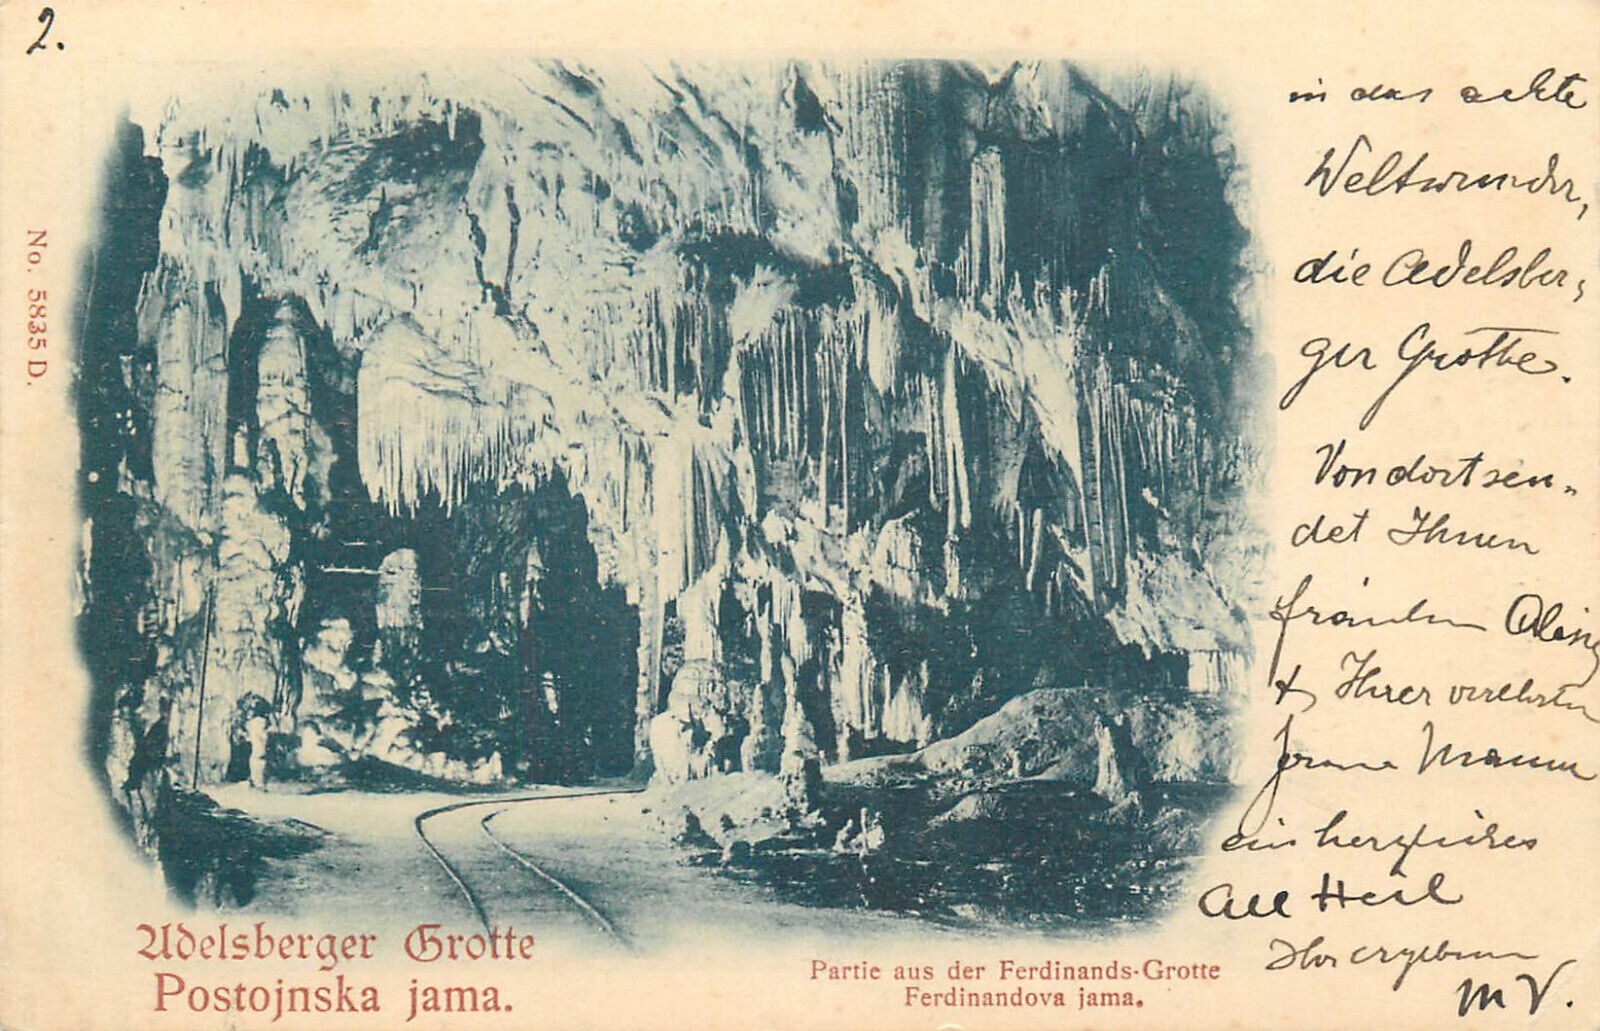 2.
No. 5835 D.
in das achte
Weltwunder,
die Adelsber„
ger Grotte.
Von dort sen„
det Ihnen
Fräulein
& Ihrer verehrten
Frau Mamma
ein herzliches
All Heil
Ihr ergebener
M V.
Adelsberger Grotte
Postojnska jama.
Partie aus der Ferdinands-Grotte
Ferdinandova jama.